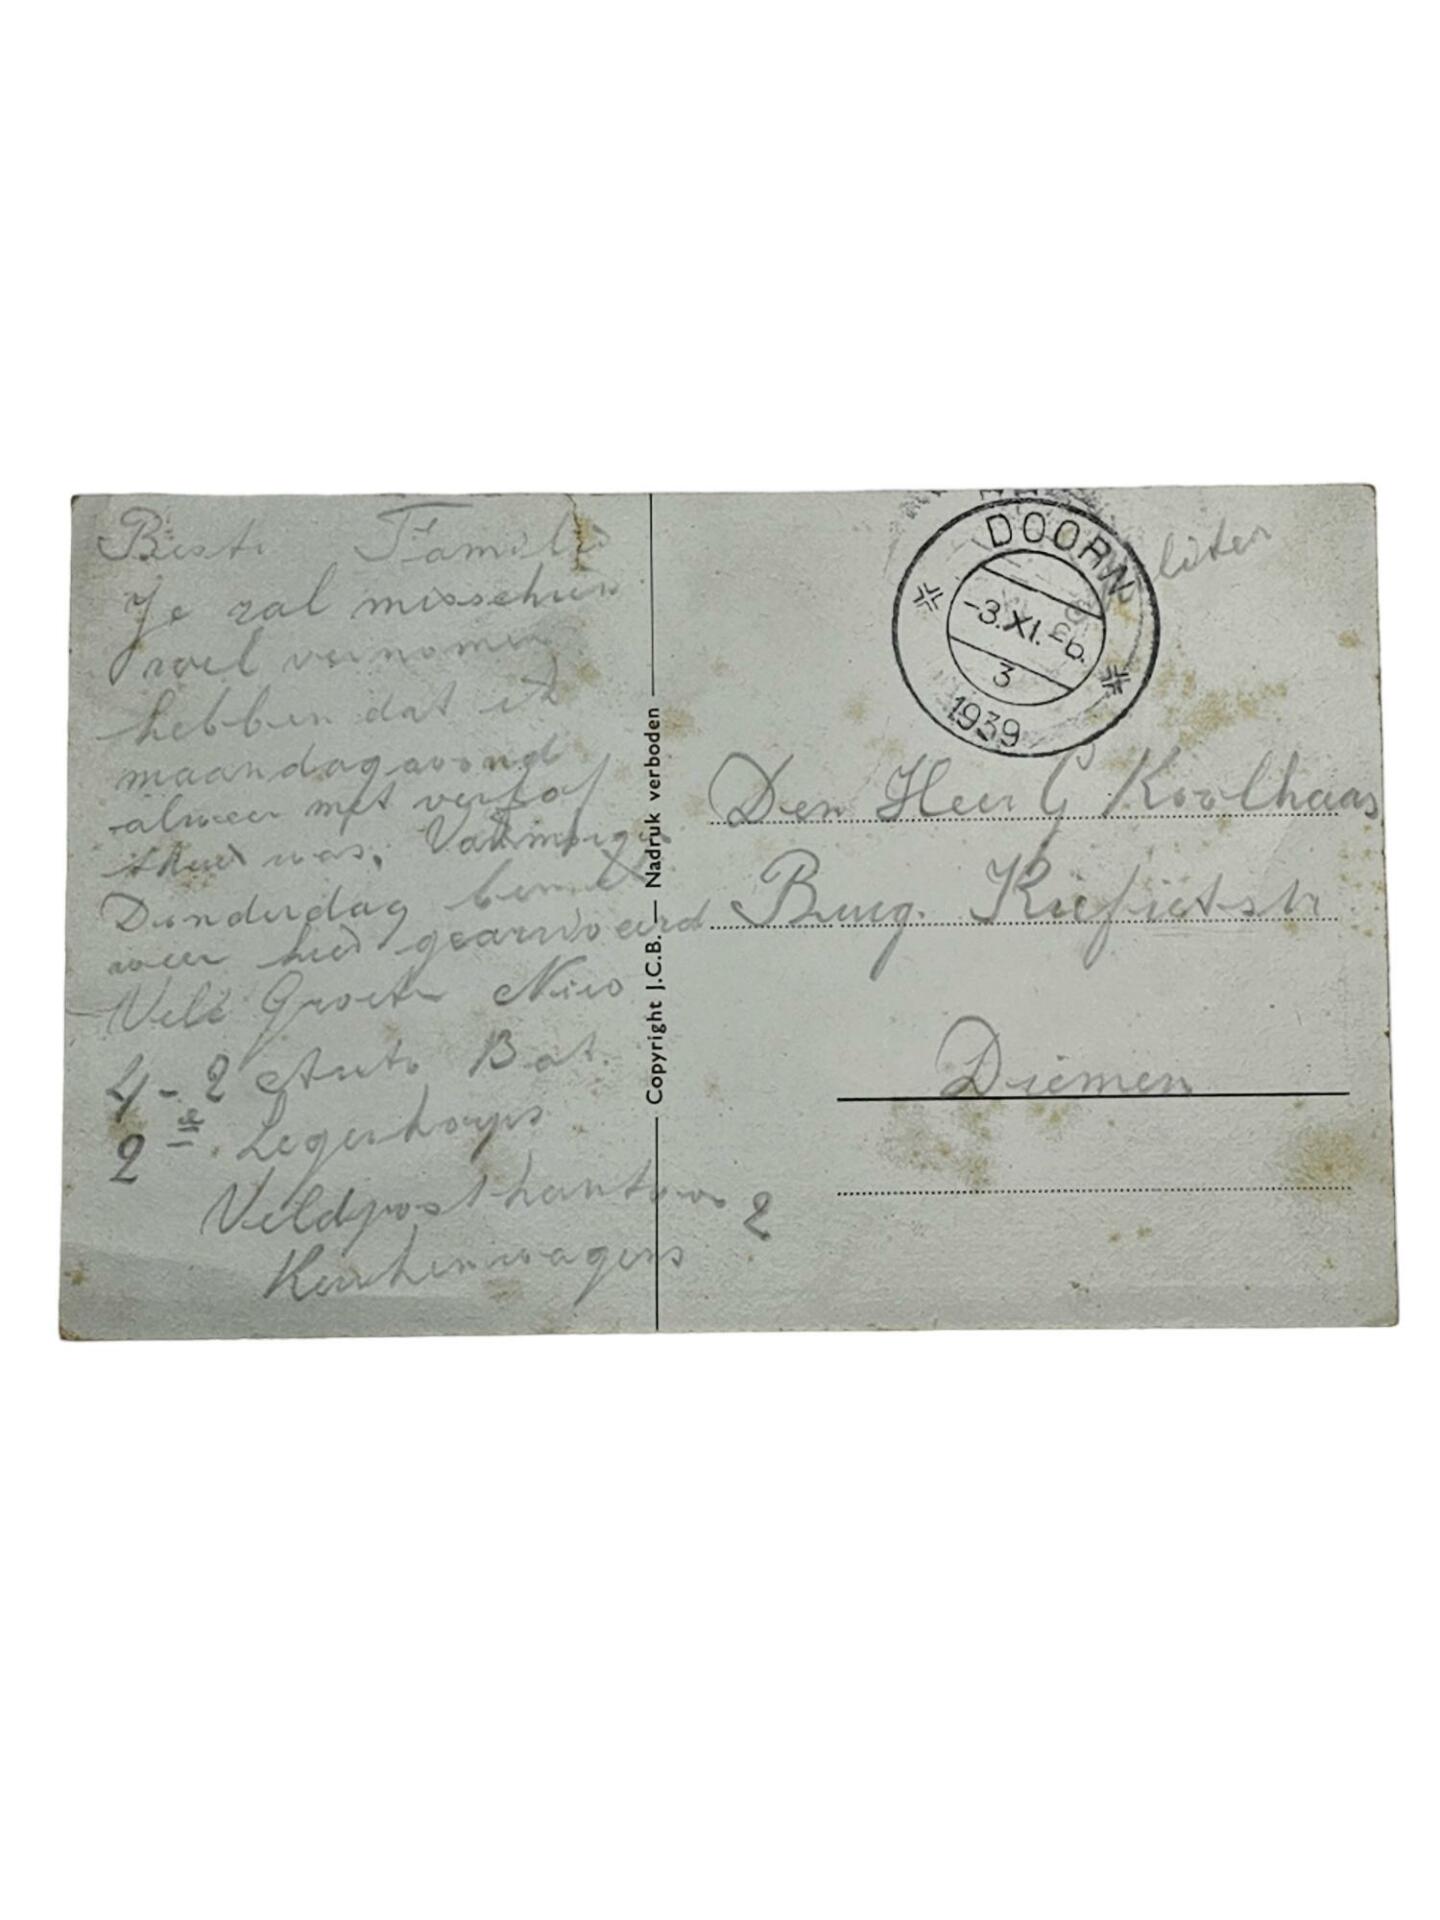 Beste Familie
Je zal misschien
wel vernomen
hebben dat ik
maandagavond
alweer met verlof
thuis was. Vanmorgen
Donderdag ben ik
weer hier gearriveerd
Vele Groeten Nico
4-2 Auto Bat.
2e Legerkorps
Veldpostkantoor 2
Keukenwagens
Copyright J.C.B. — Nadruk verboden
DOORN
-3.XI.
3
1939
Den Heer G Koolhaas
Burg. Kiefietstr
Diemen